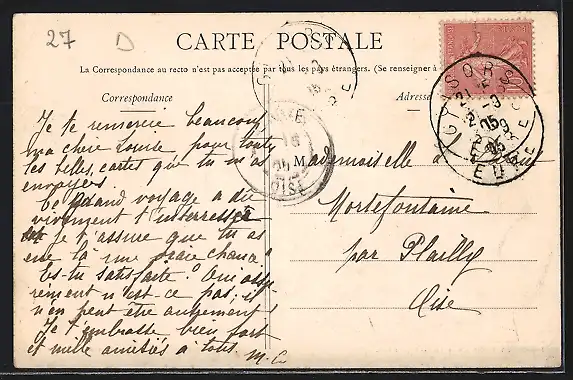 27 D
CARTE POSTALE
La Correspondance au recto n'est pas acceptée par tous les pays étrangers. (Se renseigner à
Correspondance
Adresse
Je te remercie beaucoup
ma chère Louise pour toutes
les belles cartes que tu m'as
envoyées
Ce Grand voyage a dû
vivement t'interresser
je t'assure que tu as
eue là une vraie chance
Es-tu satisfaite? Oui assu
rément n'est-ce pas, il
n'en peut être autrement
Je t'embrasse bien fort
et mille amitiés à tous. M. C.
Mademoiselle
Mortefontaine
par Plailly
Oise
GISORS
EURE
OISE